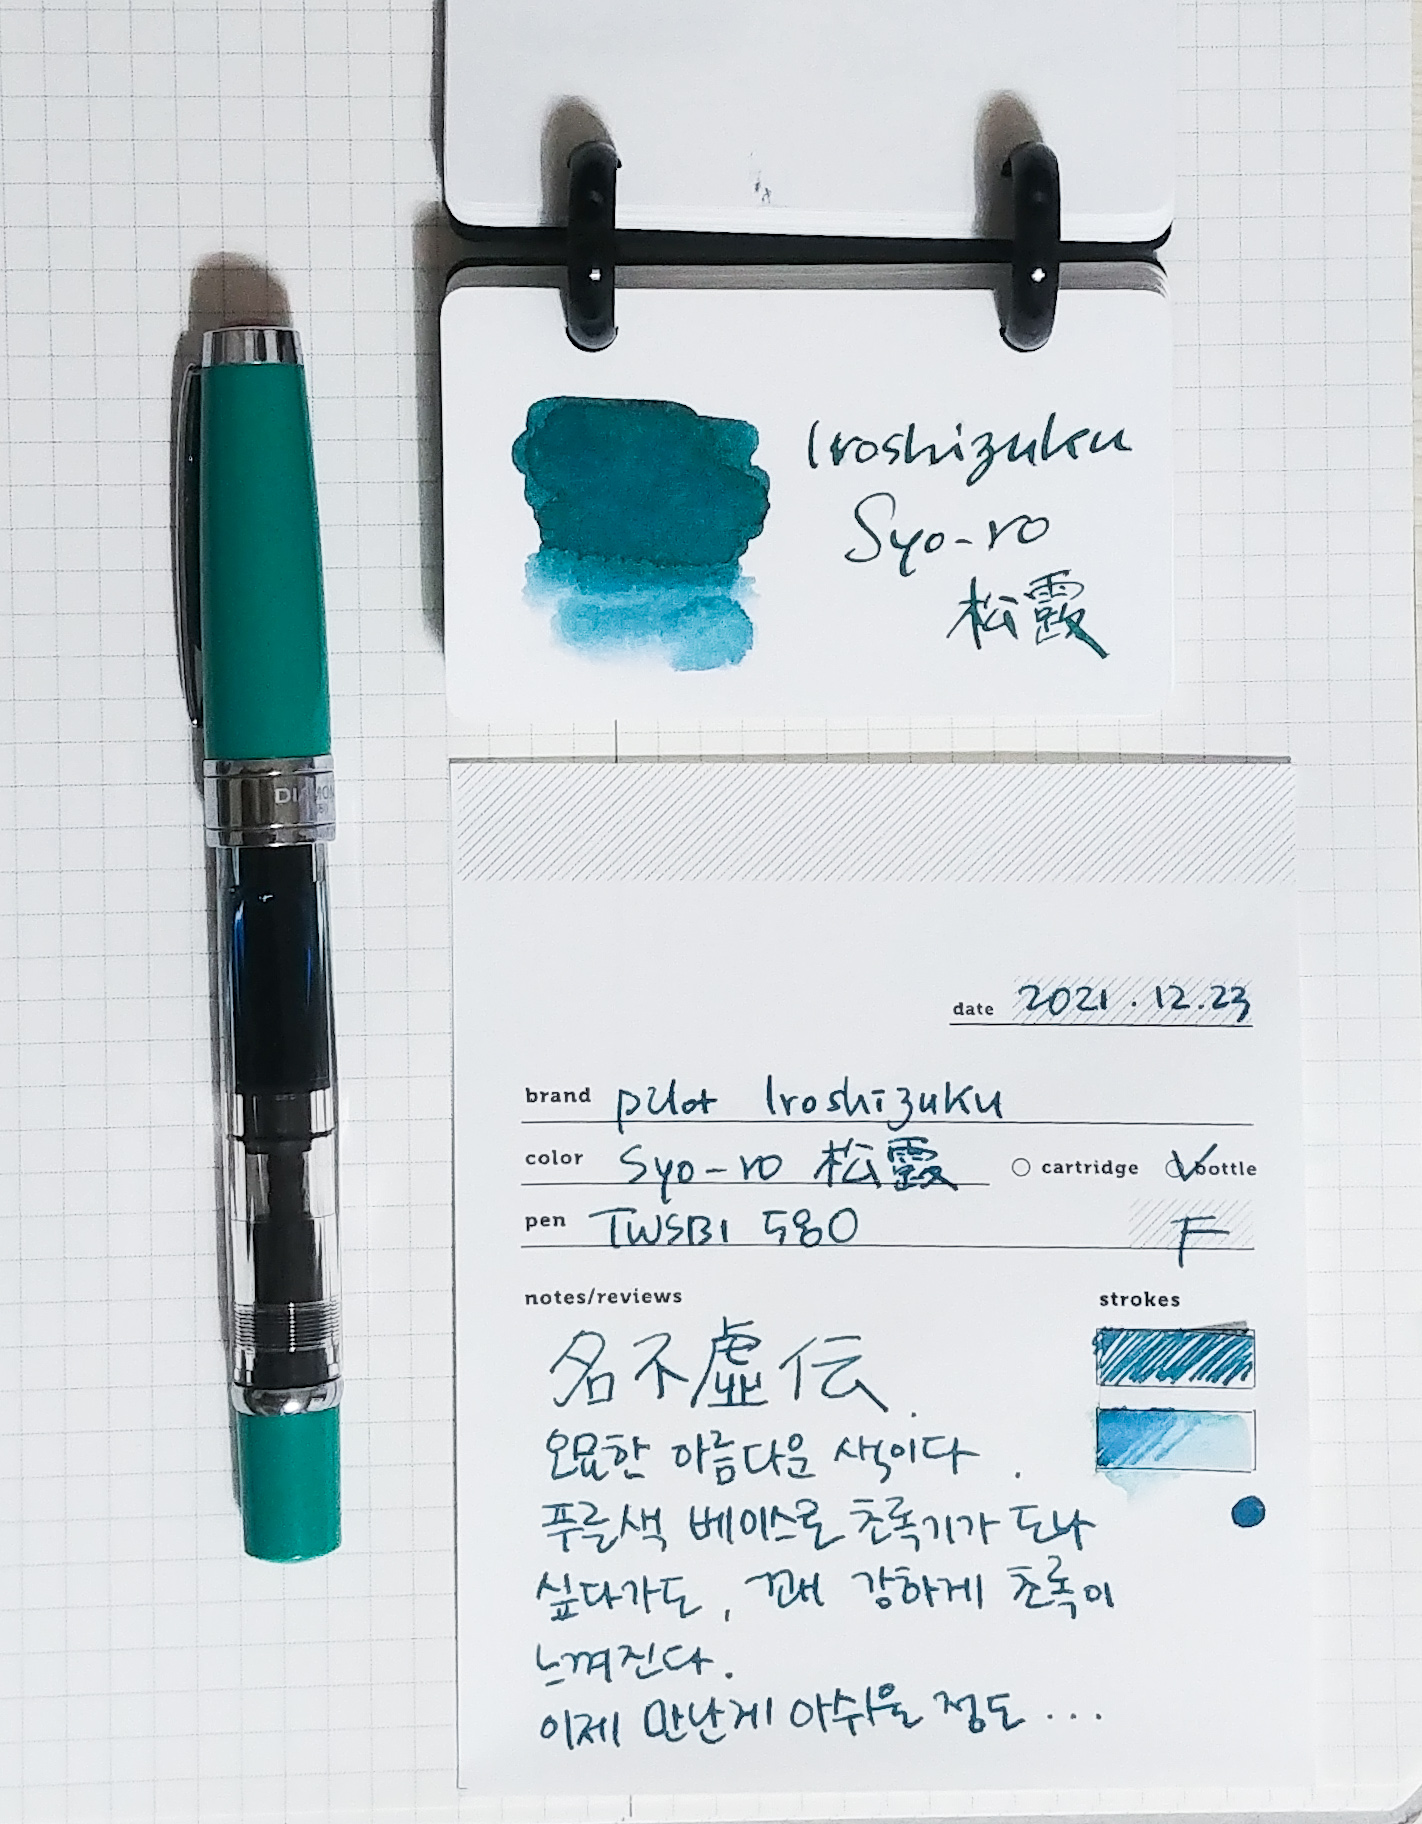 Iroshizuku
Syo-ro
松露
date 2021.12.23
brand pilot Iroshizuku
color Syo-ro 松露 cartridge bottle
pen TWSBI 580 F
notes/reviews strokes
名不虚伝.
오묘한 아름다운 색이다.
푸른색 베이스로 초록기가 도나
싶다가도, 꽤 강하게 초록이
느껴진다.
이제 만난게 아쉬울 정도...